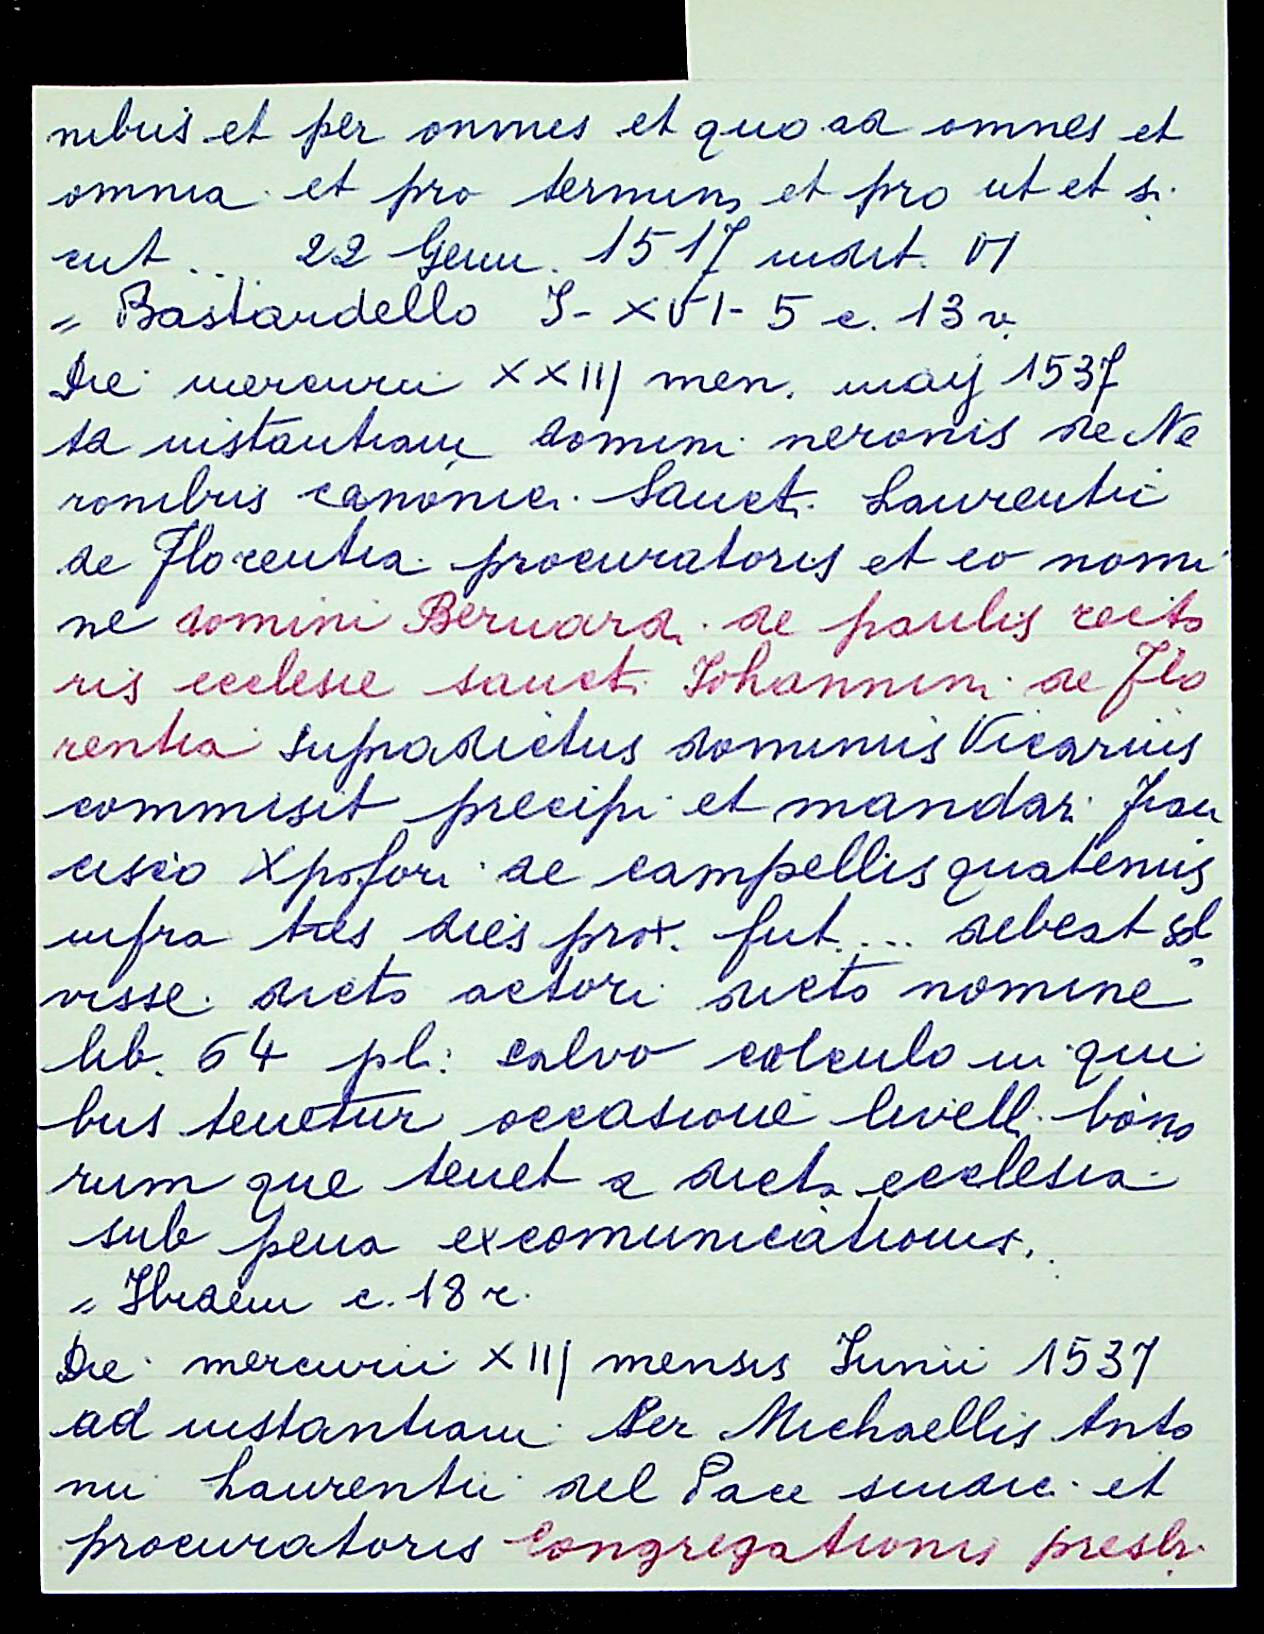 nibus et per onmes et quo ad omnes et
omnia et pro termin, et pro ut et si
cut ... 22 Genn. 1517 indit. VI
" Bastardello I-XVI-5 c. 13 v.
Die mercurii XXIIJ men. maij 1537
ad instantiam domini neronis de Ne
ronibus canonici Sancti Laurentii
de Florentia procuratoris et eo nomi
ne domini Bernardi de paulis recto
ris ecclesie sancti Iohannini de Flo
rentia supradictus dominus Vicarius
commisit precipi et mandari Fran
cisco Xpofori de campellis quatenus
infra tres dies prox. fut.... debeat sol
visse dicto actori dicto nomine
lib. 64 pl: salvo calculo in qui
bus tenetur occasione livelli bono
rum que tenet a dicta ecclesia
sub pena excomunicationis.
" Ibidem c. 18 r.
Die mercurii XIIJ mensis Iunii 1537
ad instantiam Ser Michaellis Anto
nii Laurentii del Pace sindici et
procuratoris Congregationis presbi